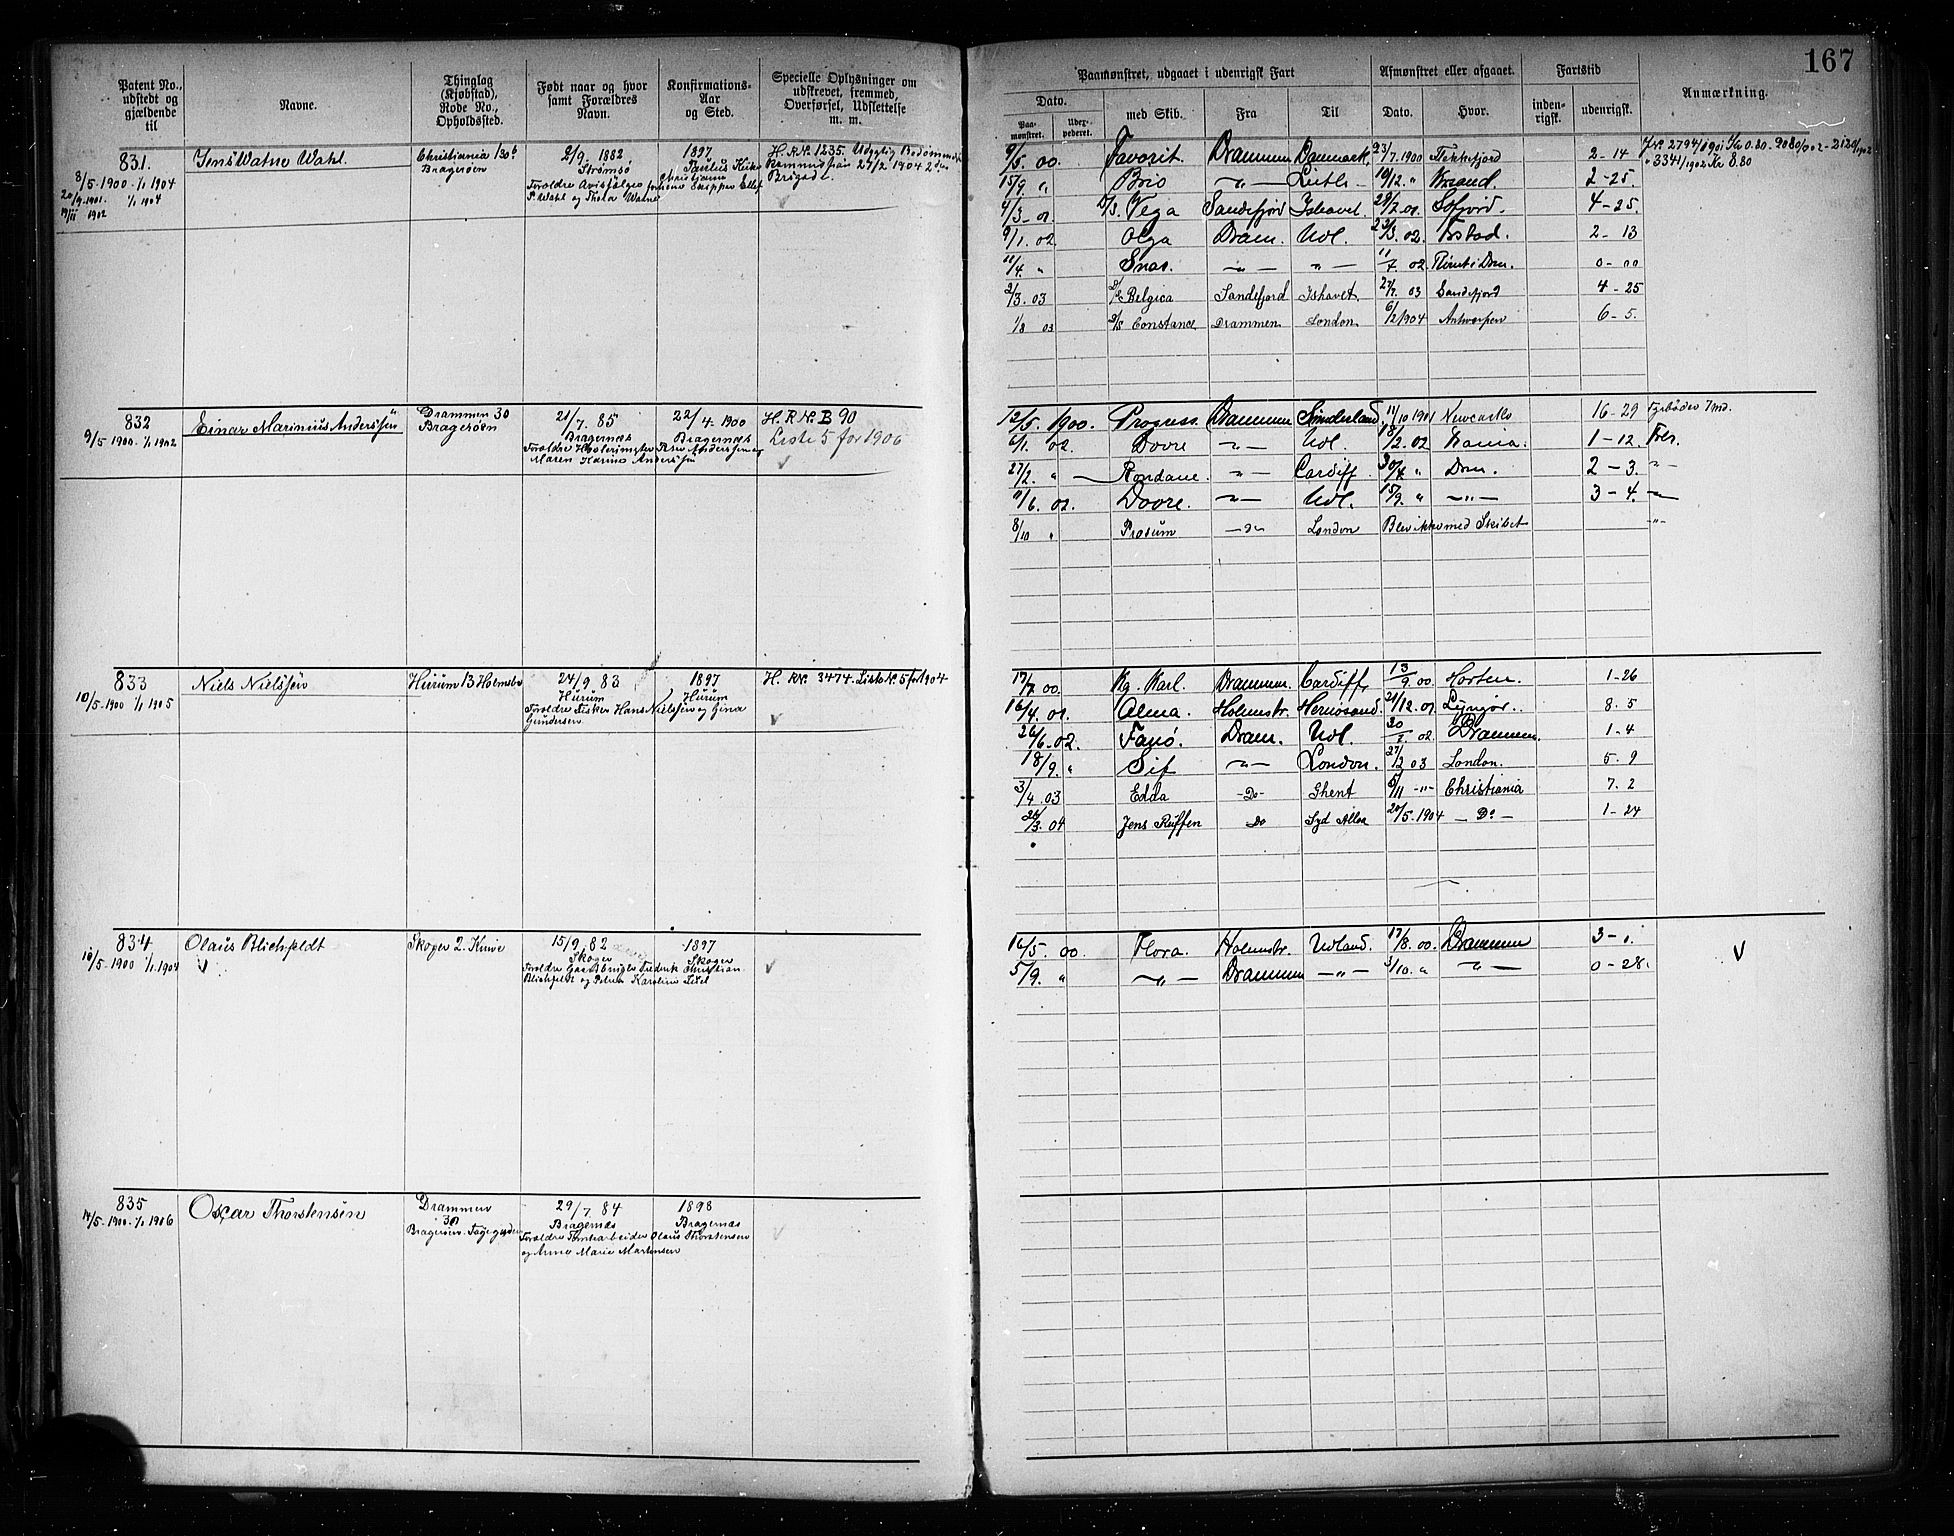 167
Patent No., udstedt og gjældende til
Navne.
Thinglag (Kjøbstad), Rode No., Opholdssted.
Født naar og hvor samt Forældres Navn.
Konfirmations- Aar og Sted.
Specielle Oplysninger om udskrevet, fremmed, Overførsel, Udslettelse m. m.
Paamønstret, udgaaet i udenrigsk Fart
Afmønstret eller afgaaet.
Fartstid
Anmærkning.
Dato.
med Skib.
Fra
Til
Dato.
Hvor.
inden- rigsk.
udenrigsk.
Paa- mønstret.
Udex- pederet.
831.
8/5-1900 - 1/1 1904
1/1 1904
1902
Jens Watne Wahl.
Christiania 130b
Bragerøen
2/9. 1882
Strømsø
P. Wahl og Thola Watne
1897
Christiania
H. R. No. 1235.
27/2 1904 2den
Brigade.
9/5. 00. Favorit. Drammen Danmark 23/7. 1900 Flekkefjord 2-14
15/9 " Brio -"- Leith - 10/12. " Krsand. 2-25.
4/3-01 D/S. Vega Sandefjord Ishavet. 29/7. 01. Sfjord. 4-25.
9/1. 02 Olga Dram. Udl. 23/3. 02. Frstad. 2-13
11/4. " Snar. -"- -"- 11/7 02 Rømt i Dm. 0-00
2/3. 03 D/S Belgica Sandefjord Ishavet 27/7. 03 Sandefjord 4-25
1/8 03 D/S Constance Drammen London 6/2 1904 Antwerpen 6-5.
832
9/5-1900. 1/1 1902
Einar Marinius Anderssen
Drammen 30
Bragerøen
21/7. 85
Bragernæs
Maren Karine Anderssen
22/4. 1900
Bragernæs
H. R. No. B 90
Liste 5 for 1906
12/5. 1900. Progress Drammen Sunderland 11/10 1901 Newcastle 16-29 Fyrbøder 7 Md.
6/1. 02. Dovre -"- Udl. 18/2. 02 Krania. 1-12. Do.
27/2. " Rondane. -"- Cardiff 30/4. " Dm. 2-3. -"-
11/6. 02. Dovre. -"- Udl. 15/9. " -"- 3-4. -"-
8/10 " Prosum -Do- London Blev ikke med Skibet -"-
833
10/5-1900 1/1 1905
Niels Nielssen
Hurum 13 Holmsbo
24/9. 83
Hurum
Forældre Fisker Hans Nielssen og Gina
Gundersen
1897
Hurum
H. R No. 3474. Liste No. 5 for 1904
17/7. 00. Kg. Karl. Drammen. Cardiff 13/9. 00. Horten. 1-26
16/4. 01. Alma. Holmstr. Hernøsand. 21/12. 01 Lyngør. 8.5
26/6.02. Fanø. Dram. Udl. 30/7 02. Drammen. 1-4
18/9. " Sif -"- London. 27/2 03 London. 5.9
3/4. 03 Edda -Do- Ghent 5/11 -"- Christiania 7.2
26/3. 04 Jens Ruffen Do Syd Alloa 20/5. 1904 - Do - 1-24
834
10/5-1900 1/1.1904
Olaus Blichfeldt
Skoger 2. Knive
15/9. 82
Skoger
Forældre Gaardbruger Fredrik Christian
Blichfeldt og Karoline
1897
Skoger
16/5. 00. Flora. Holmstr. Udland. 17/8. 00. Drammen 3-1.
5/9. " -"- Drammen -"- 3/10. " -"- 0-28.
835
14/5-1900-1/1 1906
Oscar Thorstensen
Drammen
30
Bragerøen
29/7. 84
Bragernæs
Forældre Tomtearbeider Olaus Thorstensen
og Anne Marie Martinsen
1898
Bragernæs